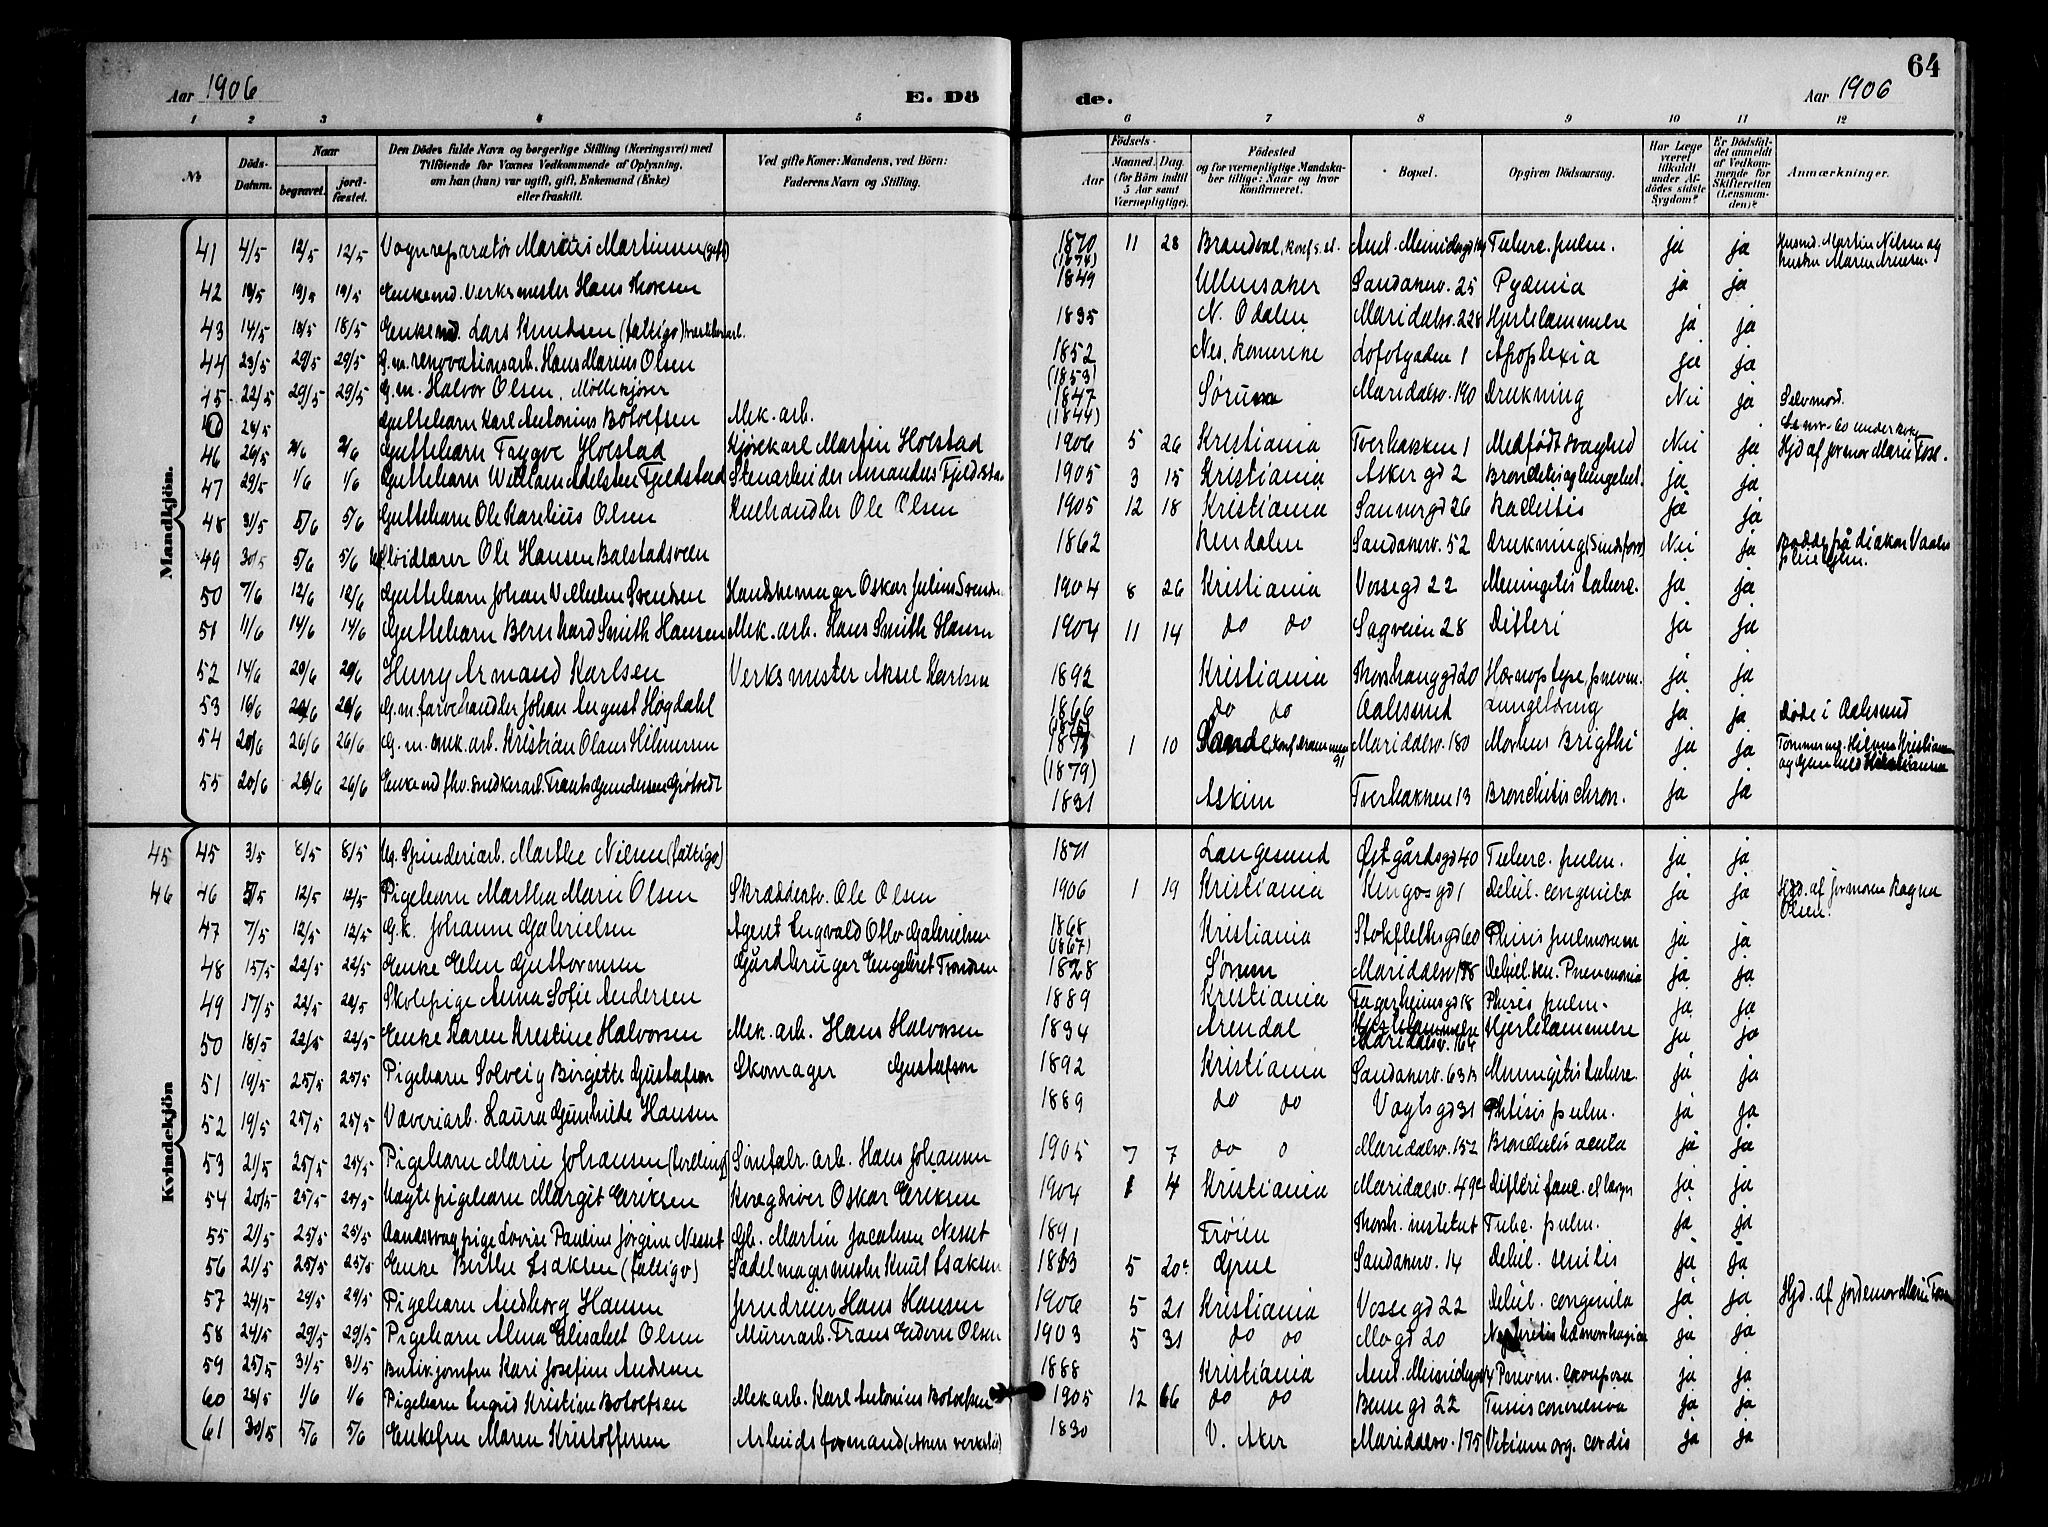 64
Aar 1906
E. Dö
de.
Aar 1906
1 2 3 4 5 6 7 8 9 10 11 12
No
Döds-Datum.
Naar
begravet.
jord-fæstet.
Den Dödes fulde Navn og borgerlige Stilling (Næringsvei) med
Tilföiende for Voxnes Vedkommende af Oplysning,
om han (hun) var ugift, gift, Enkemand (Enke)
eller fraskilt.
Ved gifte Koner: Mandens, ved Börn:
Faderens Navn og Stilling.
Födsels-
Aar
Maaned. Dag.
(for Börn indtil
5 Aar samt
Værnepligtige).
Födested
og for værnepligtige Mandska-
ber tillige: Naar og hvor
konfirmeret.
Bopæl.
Opgiven Dödsaarsag.
Har Læge
været
tilkaldt
under Af-
dödes sidste
Sygdom?
Er Dödsfal-
det anmeldt
af Vedkom-
mende for
Skifteretten
(Lensman-
den)?
Anmærkninger.
Mandkjön.
41 4/5 12/5 12/5 Vognreparatør Marius Martinsen (gift) 1870 (1874) 11 28 Brandval, ja ja Martin Nilsen og
hustru Maren
42 12/5 19/5 19/5 Enkemd. Verksmester Hans Thoresen 1849 Ullensaker Sandakerv. 25 Pyæmia ja ja
43 14/5 18/5 18/5 Enkemd. Lars Knudsen (fattigv) 1835 N. Odalen Maridalsv. 228 Hjertelammelse ja ja
44 23/5 29/5 29/5 G.m. renovationsarb. Hans Marius Olsen 1852 (1853) Nes, Romerike Lofotgaden 1 Apoplexia ja ja
45 22/5 29/5 29/5 G.m. Halvor Olsen, Møllekjører 1847 (1844) Sørum Maridalsv. 190 Drukning Nei ja Selvmord.
28/5 Guttebarn Karl Antonius Botolfsen Mek. arb. Se nr. 60 under
46 26/5 2/6 2/6 Guttebarn Trygve Holstad Kjørekarl Martin Holstad 1906 5 26 Kristiania Tverbakken 1 Medfødt svaghed Nei ja Hjd af jormor Marie
47 29/5 1/6 1/6 Guttebarn William Adelsten Fjeldstad Stenarbeider Amandus 1905 3 15 Kristiania Asker gd 2 ja ja
48 31/5 5/6 5/6 Guttebarn Ole Karelius Olsen Kulhandler Ole Olsen 1905 12 18 Kristiania Sannergd 26 Rachitis ja ja
49 30/5 5/6 5/6 Ole Hansen Balstadsveen 1862 Rendalen Sandakerv. 52 Drukning Nei ja
50 7/6 12/6 12/6 Guttebarn Johan Vilhelm Svendsen Handskemager Oskar Julius 1904 8 26 Kristiania Vossegd 22 Meningitis tuberc. ja ja
51 11/6 14/6 14/6 Guttebarn Bernhard Smith Hansen Mek. arb. Hans Smith Hansen 1904 11 14 do do Sagveien 28 Difteri ja ja
52 14/6 20/6 20/6 Henry Armand Karlsen Verksmester Aksel Karlsen 1892 Kristiania Thorshauggd 20 ja ja
53 16/6 20/6 20/6 G.m. farvehandler Johan August Høgdahl 1866 do do Aalesund ja ja Døde i Aalesund
54 20/6 26/6 26/6 G.m. mek. arb. Kristian Olaus Hilmersen (1879) 1 10 Sande, konf. Drammen 91 Maridalsv. 180 Morbus Brigthi ja ja
55 20/6 26/6 26/6 Enkemd fhv. snedkerarb. Frants Gundersen 1831 Askim Tverbakken 13 Bronchitis chron. ja ja
Kvindekjön
45 45 3/5 8/5 8/5 Ug. Spinderiarb. Marthe Nilsen (fattigv) 1871 Langesund Østgårdsgd 40 Tuberc. pulm. ja ja
46 46 5/5 12/5 12/5 Pigebarn Martha Marie Olsen Skrædder Ole Olsen 1906 1 19 Kristiania Kingosgd 1 Debil. congenita ja ja Hjd. af jormoren Ragna
Olsen.
47 7/5 12/5 12/5 G.k. Johanne Gabrielsen Agent Engvald Otto Gabrielsen 1868 (1867) Kristiania Stokflethsgd 60 Phisis pulmonum ja ja
48 15/5 22/5 22/5 Enke Elen Guttormsen Gårdbruger Engebret 1828 Sørum Maridalsv. 178 Debil. sen. Pneumonia ja ja
49 17/5 22/5 22/5 Skolepige Anna Sofie Andersen 1889 Kristiania Fagerheimsgd 18 Phisis pulm. ja ja
50 18/5 22/5 22/5 Enke Karen Kristine Halvorsen Mek. arb. Hans Halvorsen 1834 Arendal Hjertelammelse
Maridalsv. 164 Hjertelammelse ja ja
51 19/5 25/5 25/5 Pigebarn Solveig Birgitte Gustafson Skomager Gustafson 1892 Kristiania Sandakerv. 63 b Meningitis tuberc. ja ja
52 19/5 25/5 25/5 Væveriarb. Laura Gunhilde Hansen 1889 do do Vogtsgd 31 Phtisis pulm. ja ja
53 21/5 25/5 25/5 Pigebarn Marie Johansen (tvilling) Hans Johansen 1905 7 7 do o Maridalsv. 152 Bronchitis acuta ja ja
54 20/5 25/5 25/5 pigebarn Margit Eriksen Kvægdriver Oskar Eriksen 1904 1 4 Kristiania Maridalsv. 49 c Difteri ja ja
55 21/5 25/5 25/5 Aandssvag pige Lovise Pauline Jørgine Nesset Gb. Martin Jacobsen Nesset 1891 Frøien Thorsh. institut Tubc. pulm. ja ja
56 21/5 25/5 25/5 Enke Berthe Isaksen (fattigv) Sadelmagermester Knut Isaksen 1813 5 20 Grue Sandakerv. 14 Debil. senilis ja ja
57 24/5 29/5 29/5 Pigebarn Andborg Hansen Jerndreier Hans Hansen 1906 5 21 Kristiania Vossegd 22 Debil. congenita ja ja Hjd. af jordemor Marie
58 24/5 29/5 29/5 Pigebarn Alma Elisabet Olsen Murerarb. Frans Edvin Olsen 1903 5 31 do do Mogd 20 Nephritis hæmorrhagica ja ja
59 25/5 31/5 31/5 Butikjomfru Kari Josefine Andersen 1888 Kristiania Pnevm. crouposa ja ja
60 28/5 1/6 1/6 Pigebarn Ingrid Kristine Botolfsen Mek arb. Karl Antonius Botolfsen 1905 12 66 do do Bentsegd 22 Tussis convulsiva ja ja
61 30/5 5/6 5/6 Enkefru Maren Kristoffersen Arbeidsformand (Akers 1830 V. Aker Maridalsv. 175 Vitium org. cordis ja ja